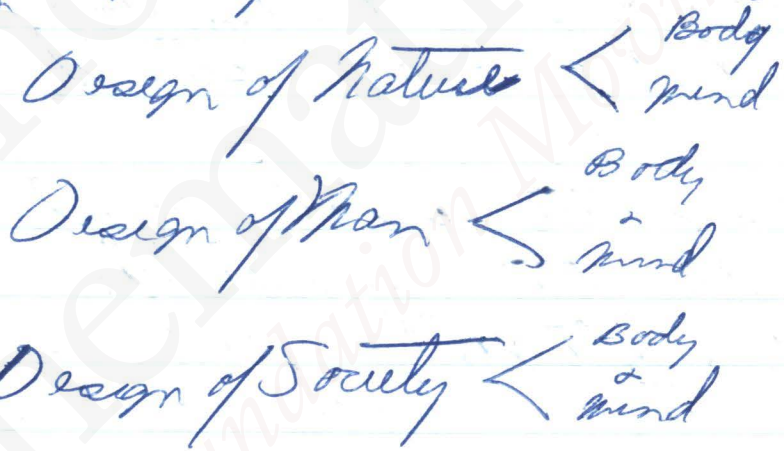 Design of Nature < Body
mind
Design of Man < Body
&
mind
Design of Society < Body
&
mind